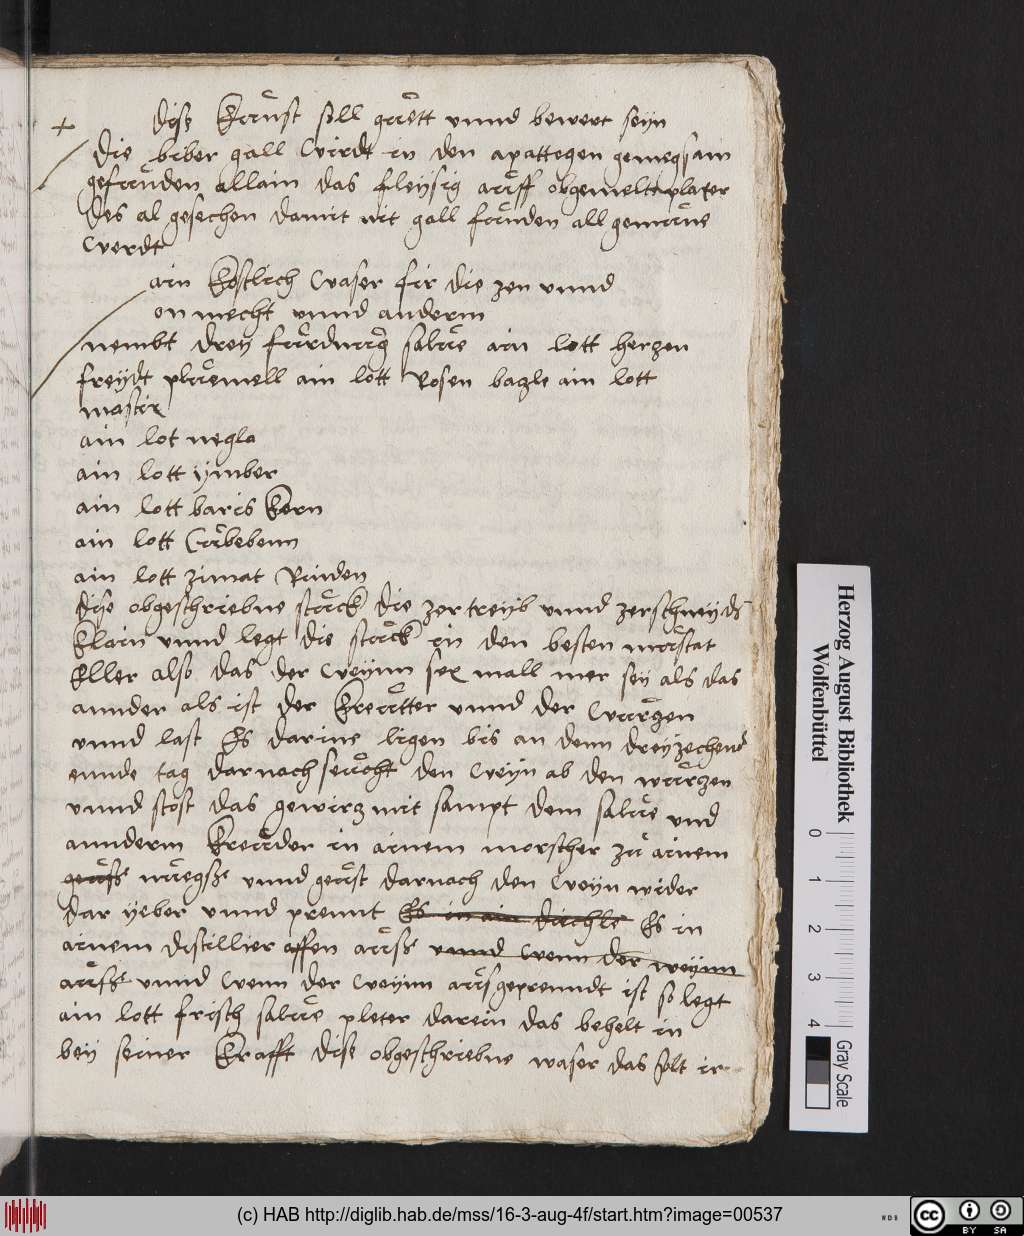 + dise kunst soll guett vnnd bewert seyn
die biber gall wirdt in den apattegen gemegsam
gefunden allain das fleysig auff obgemelt plater
des al gesechen damit nit gall funden all gemaue
werdt
ain köstlich waser fir die zen vnnd
onmecht vnnd anderm
nembt drey salue ain lott herzen
freydt plüemell ain lott Rosen bazle ain lott
mastix
ain lot negla
ain lott ymber
ain lott baris kern
ain lott Cubebenn
ain lott zimat Rinden
dise obgeschriebne stuck die zertreyb vnnd zerschneydt
klain vnnd legt die stuck in den besten muschat
eller also das der weynn sex mall mer sey als das
annder als ist der kreutter vnnd der wurzen
vnnd last es darine ligen bis an denn dreyzechend
ennde tag darnach seucht den weyn ab den wurzen
vnnd stost das gewirz mit sampt dem salue vnd
annderm kreuder in ainem morscher zu ainem
muegsße vnnd geust darnach den weyn wider
dar yeber vnnd prennt es in ain diechle es in
ainem distillier offen auss vnnd wenn der weynn
auss vnnd wenn der weynn ausgeprenndt ist so legt
ain lott frisch salue pleter darein das behelt in
bey seiner krafft dise obgeschriebne waser das solt ir
Herzog August Bibliothek
Wolfenbüttel
0 1 2 3 4
Gray Scale
(c) HAB http://diglib.hab.de/mss/16-3-aug-4f/start.htm?image=00537
WDB
cc BY SA